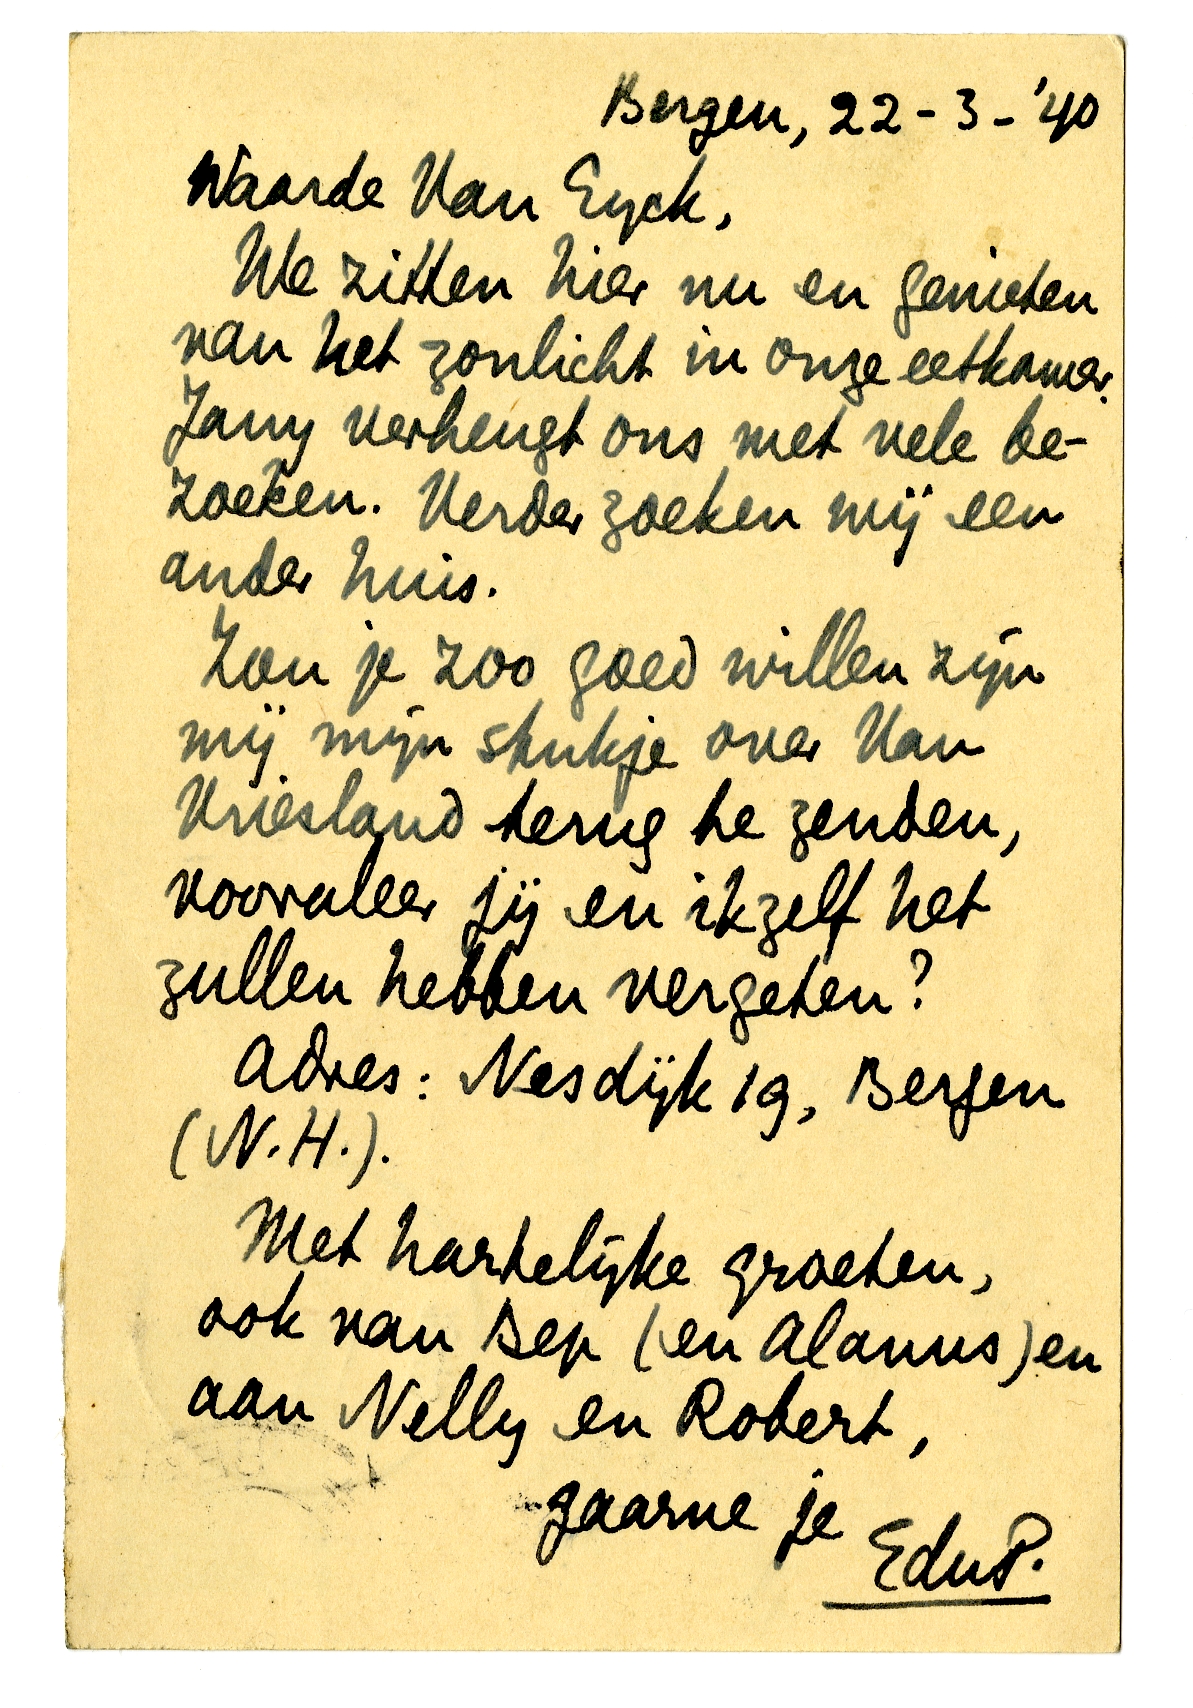 Bergen, 22-3-'40
Waarde Van Eyck,
We zitten hier nu en genieten
van het zonlicht in onze eetkamer.
Jany verheugt ons met vele be-
zoeken. Verder zoeken wij een
ander huis.
Zou je zoo goed willen zijn
mij mijn stukje over Van
Vriesland terug te zenden,
vooraleer jij en ikzelf het
zullen hebben vergeten?
Adres: Nesdijk 19, Bergen
(N.H.).
Met hartelijke groeten,
ook van Bep (en Alanus) en
aan Nelly en Robert,
gaarne je
EduP.